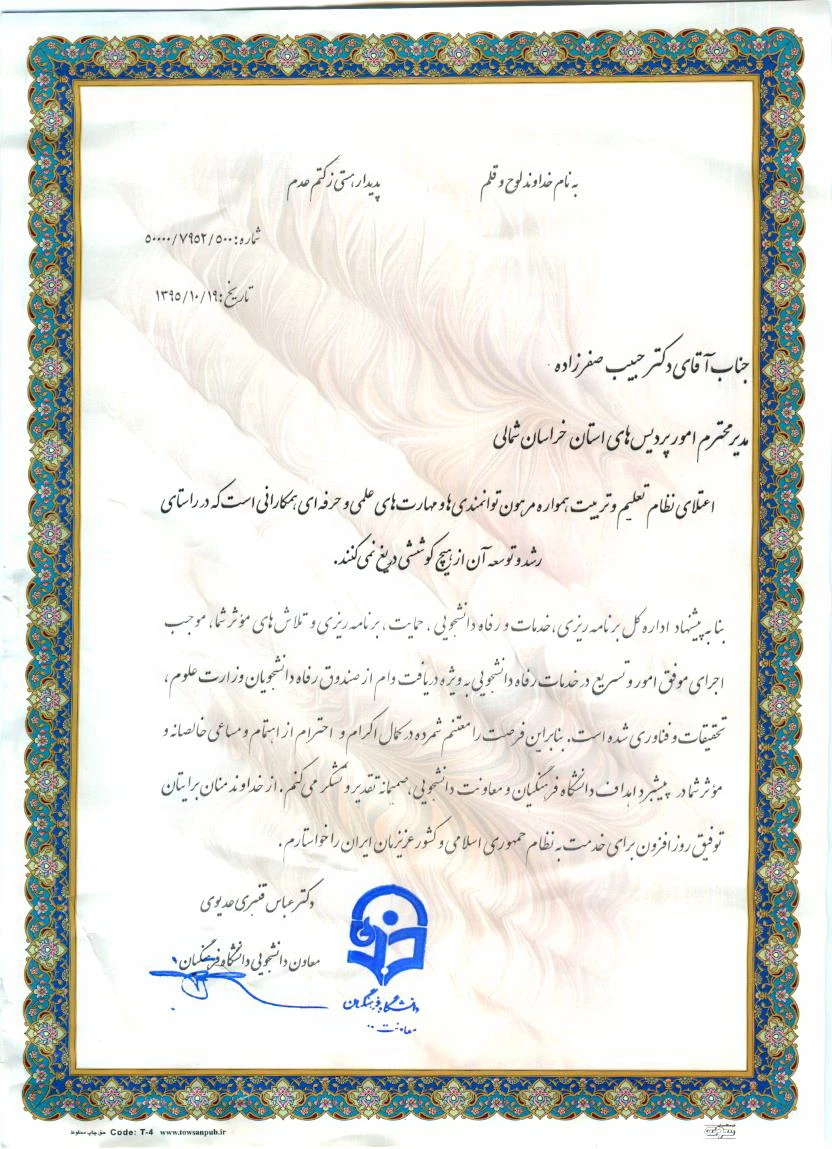 به نام خداوند لوح و قلم پدیدار هستی ز کتم عدم
شماره: ۵۰۰۰۰/۷۹۵۲/۵۰۰
تاریخ: ۱۳۹۵/۱۰/۱۹
جناب آقای دکتر حبیب صفرزاده
مدیر محترم امور پردیس های استان خراسان شمالی
اعتلای نظام تعلیم و تربیت همواره مرهون توانمندی ها و مهارت های علمی و حرفه ای همکارانی است که در راستای
رشد و توسعه آن از هیچ کوششی دریغ نمی کنند.
بنا به پیشنهاد اداره کل برنامه ریزی، خدمات و رفاه دانشجویی، حمایت، برنامه ریزی و تلاش های مؤثر شما، موجب
اجرای موفق امور و تسریع در خدمات رفاه دانشجویی به ویژه دریافت وام از صندوق رفاه دانشجویان وزارت علوم،
تحقیقات و فناوری شده است. بنابراین فرصت را مغتنم شمرده در کمال اکرام و احترام از اهتمام و مساعی خالصانه و
مؤثر شما در پیشبرد اهداف دانشگاه فرهنگیان و معاونت دانشجویی، صمیمانه تقدیر و تشکر می کنم. از خداوند منان برایتان
توفیق روز افزون برای خدمت به نظام جمهوری اسلامی و کشور عزیزمان ایران را خواستارم.
دکتر عباس قنبری عدیوی
معاون دانشجویی دانشگاه فرهنگیان
دانشگاه فرهنگیان
معاونت
حق چاپ محفوظ Code: T-4 www.towsanpub.ir